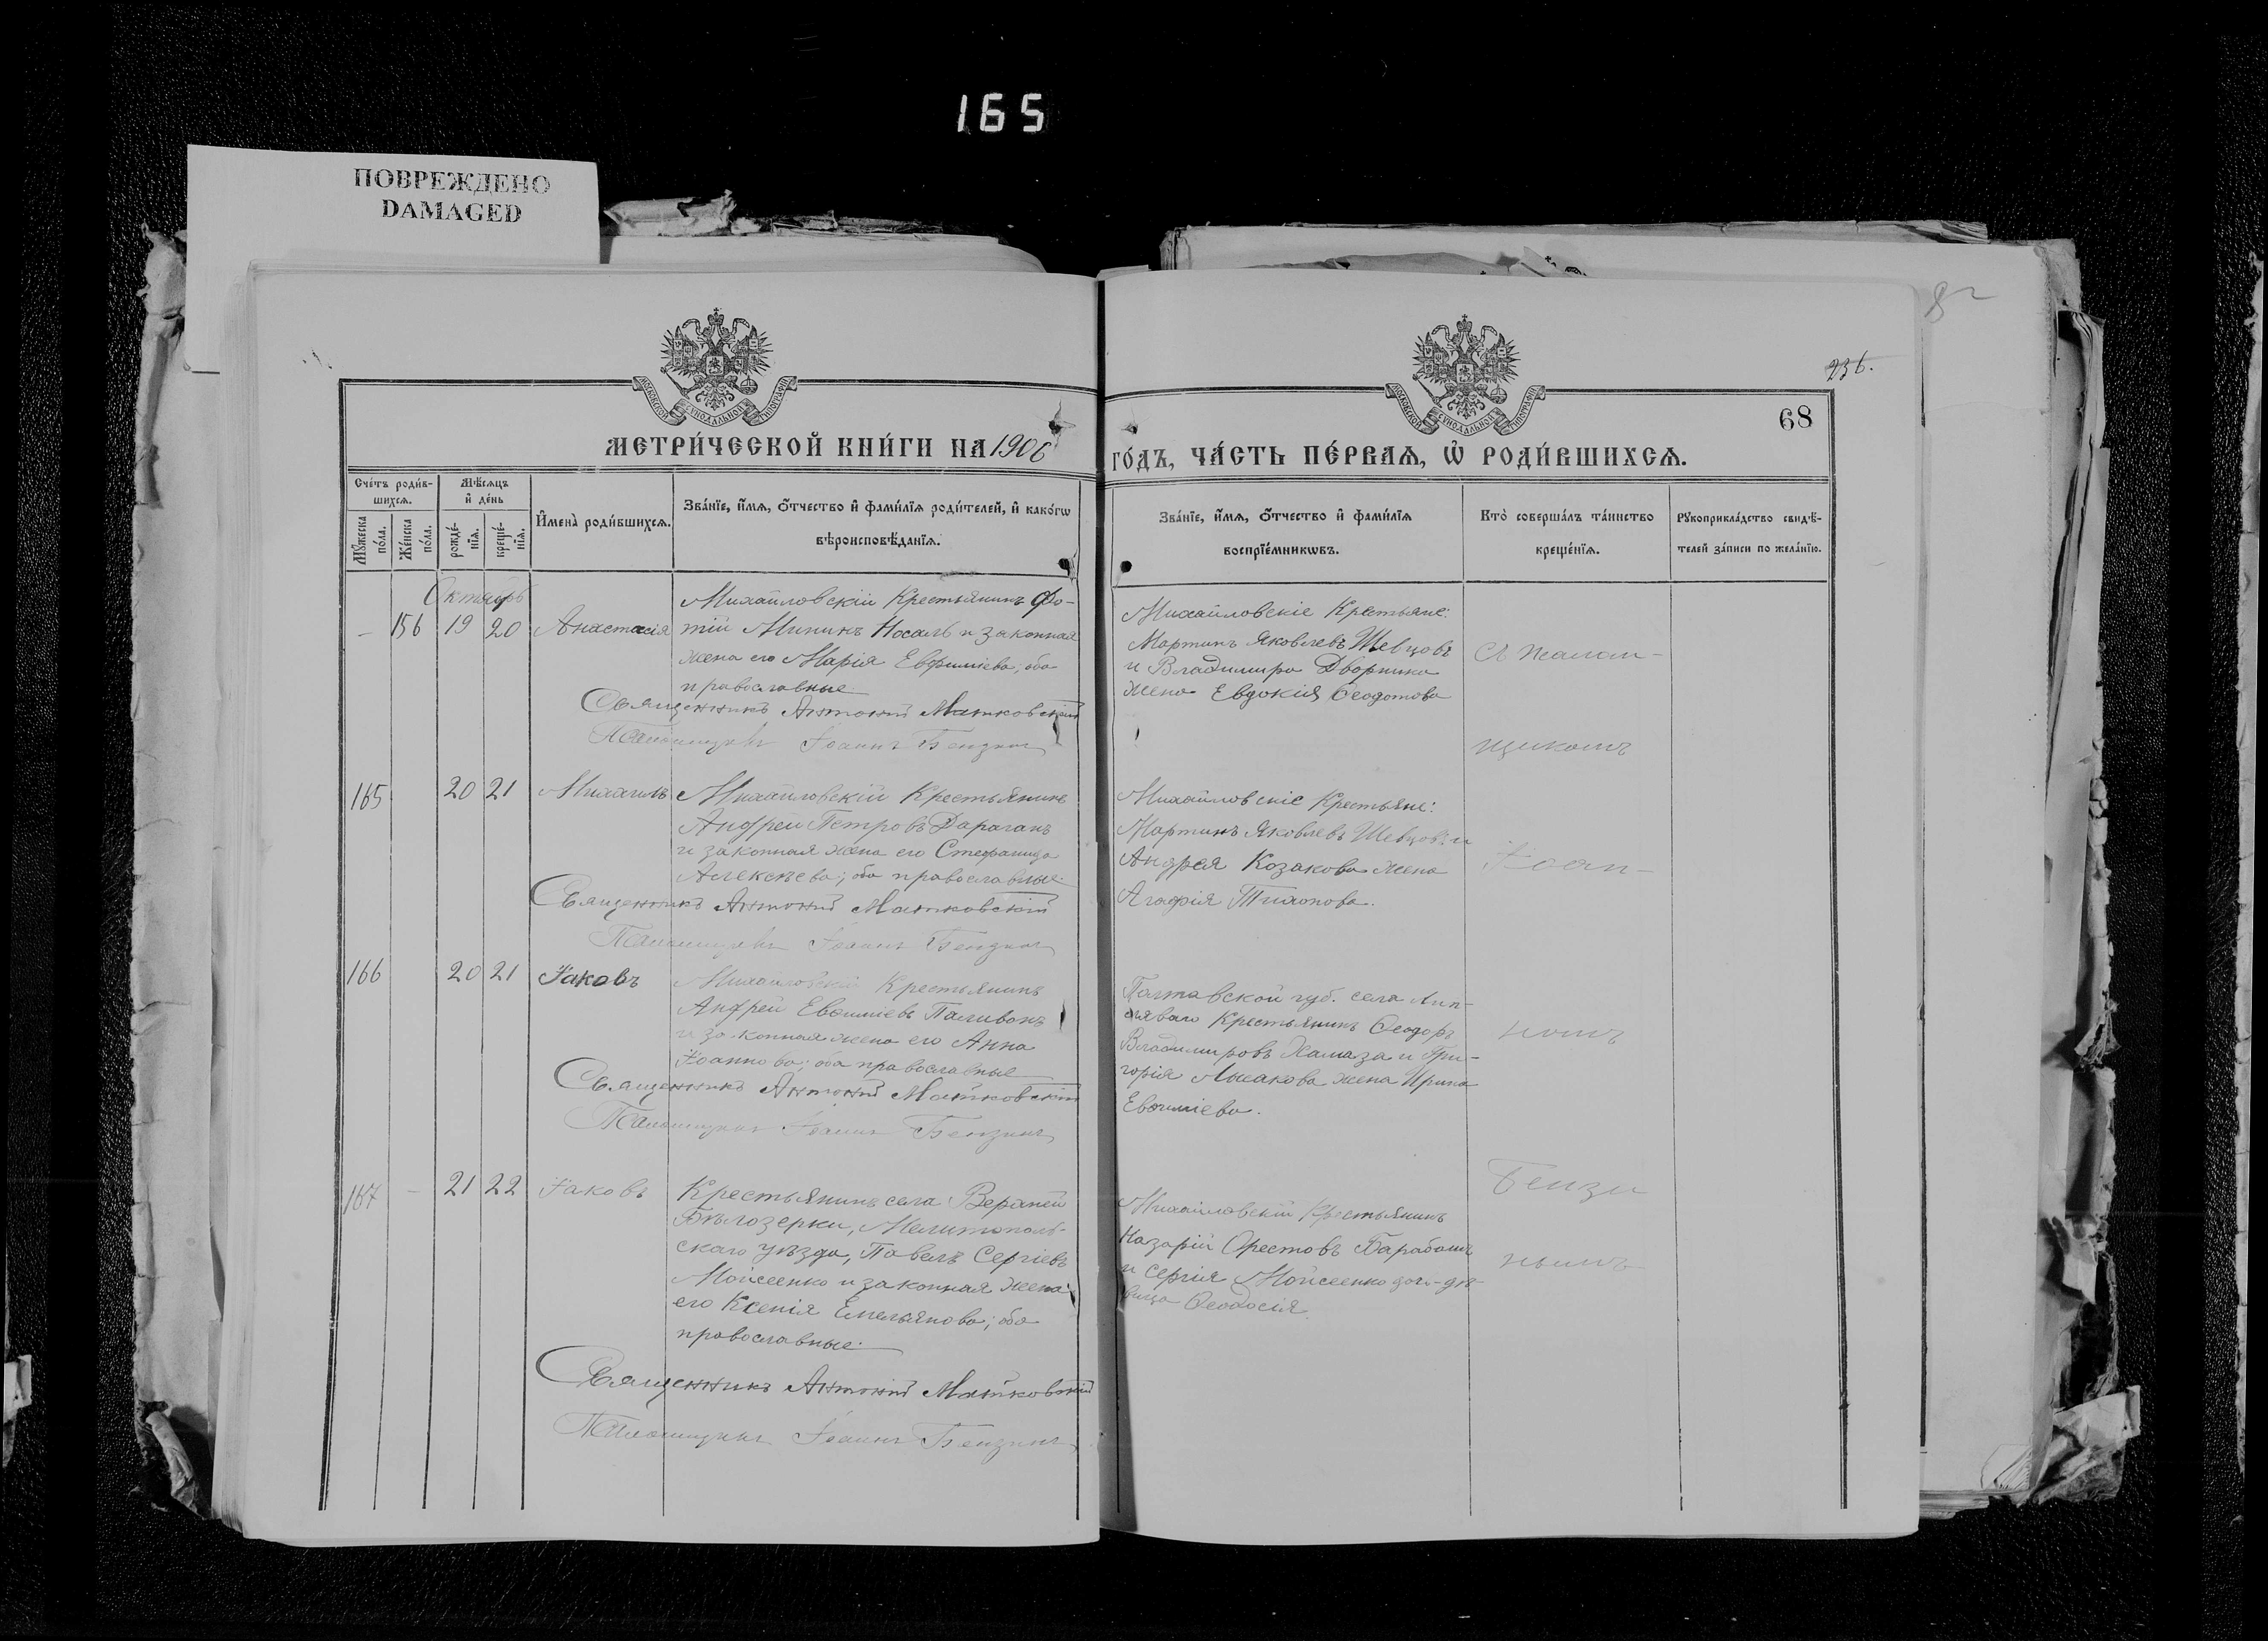 165
ПОВРЕЖДЕНО
DAMAGED
236.
68
МОСКОВСКОЙ СѴНОДАЛЬНОЙ ТИПОГРАФІИ
МОСКОВСКОЙ СѴНОДАЛЬНОЙ ТИПОГРАФІИ
МЕТРИ́ЧЕСКОЙ КНИ́ГИ НА 1906
ГО́ДЪ, ЧА́СТЬ ПЕ́РВАѦ, Ѡ҆ РОДИ́ВШИХСѦ.
Сче́тъ роди́в-
шихсѧ.
Мѣ́сѧцъ
и҆ де́нь
Мꙋ́жеска
по́ла.
Же́нска
по́ла.
рожде́-
нїѧ.
креще́-
нїѧ.
И҆мена̀ роди́вшихсѧ.
Зва́нїе, и҆́мѧ, ѻ҆́тчество и҆ фами́лїѧ роди́телей, и҆ како́гѡ
вѣроисповѣ́данїѧ.
Зва́нїе, и҆́мѧ, ѻ҆́тчество и҆ фами́лїѧ
воспрїе́мникѡвъ.
Кто̀ соверша́лъ та́инство
креще́нїѧ.
Рꙋкоприкла́дство свидѣ́-
телей за́писи по жела́нїю.
Октябрь
– 156 19 20 Анастасія
Михайловскій Крестьянинъ Фо-
тій Мининъ Носаль и законная
жена его Марія Евфиміева; оба
православные.
Священникъ Антоній Матковскій
Псаломщикъ Іоаннъ Бензинъ
Михайловскіе Крестьяне:
Мартинъ Яковлевъ Шевцовъ
и Владимира Дворника
жена Евдокія Ѳеодотова
Съ псалом-
щикомъ
165 20 21 Михаилъ
Михайловскій Крестьянинъ
Андрей Петровъ Дараганъ
и законная жена его Стефанида
Алексѣева; оба православные.
Священникъ Антоній Матковскій
Псаломщикъ Іоаннъ Бензинъ
Михайловскіе Крестьяне:
Мартинъ Яковлевъ Шевцовъ и
Андрея Козакова жена
Агафія Тихонова.
Іоан-
166 20 21 Іаковъ
Михайловскій Крестьянинъ
Андрей Евѳиміевъ Паливонъ
и законная жена его Анна
Іоаннова; оба православные
Священникъ Антоній Матковскій
Псаломщикъ Іоаннъ Бензинъ
Полтавской губ. села Лип-
няваго Крестьянинъ Ѳеодоръ
Владимировъ Хамаза и Гри-
горія Лысакова жена Ирина
Евѳиміева.
номъ
167 – 21 22 Іаковъ
Крестьянинъ села Верхней
Бѣлозерки, Мелитополь-
скаго уѣзда, Павелъ Сергіевъ
Мойсеенко и законная жена
его Ксенія Емельянова; оба
православные.
Священникъ Антоній Матковскій
Псаломщикъ Іоаннъ Бензинъ
Михайловскій Крестьянинъ
Назарій Орестовъ Барабашъ
и Сергія Мойсеенко дочь-дѣ-
вица Ѳеодосія.
Бензи
нымъ